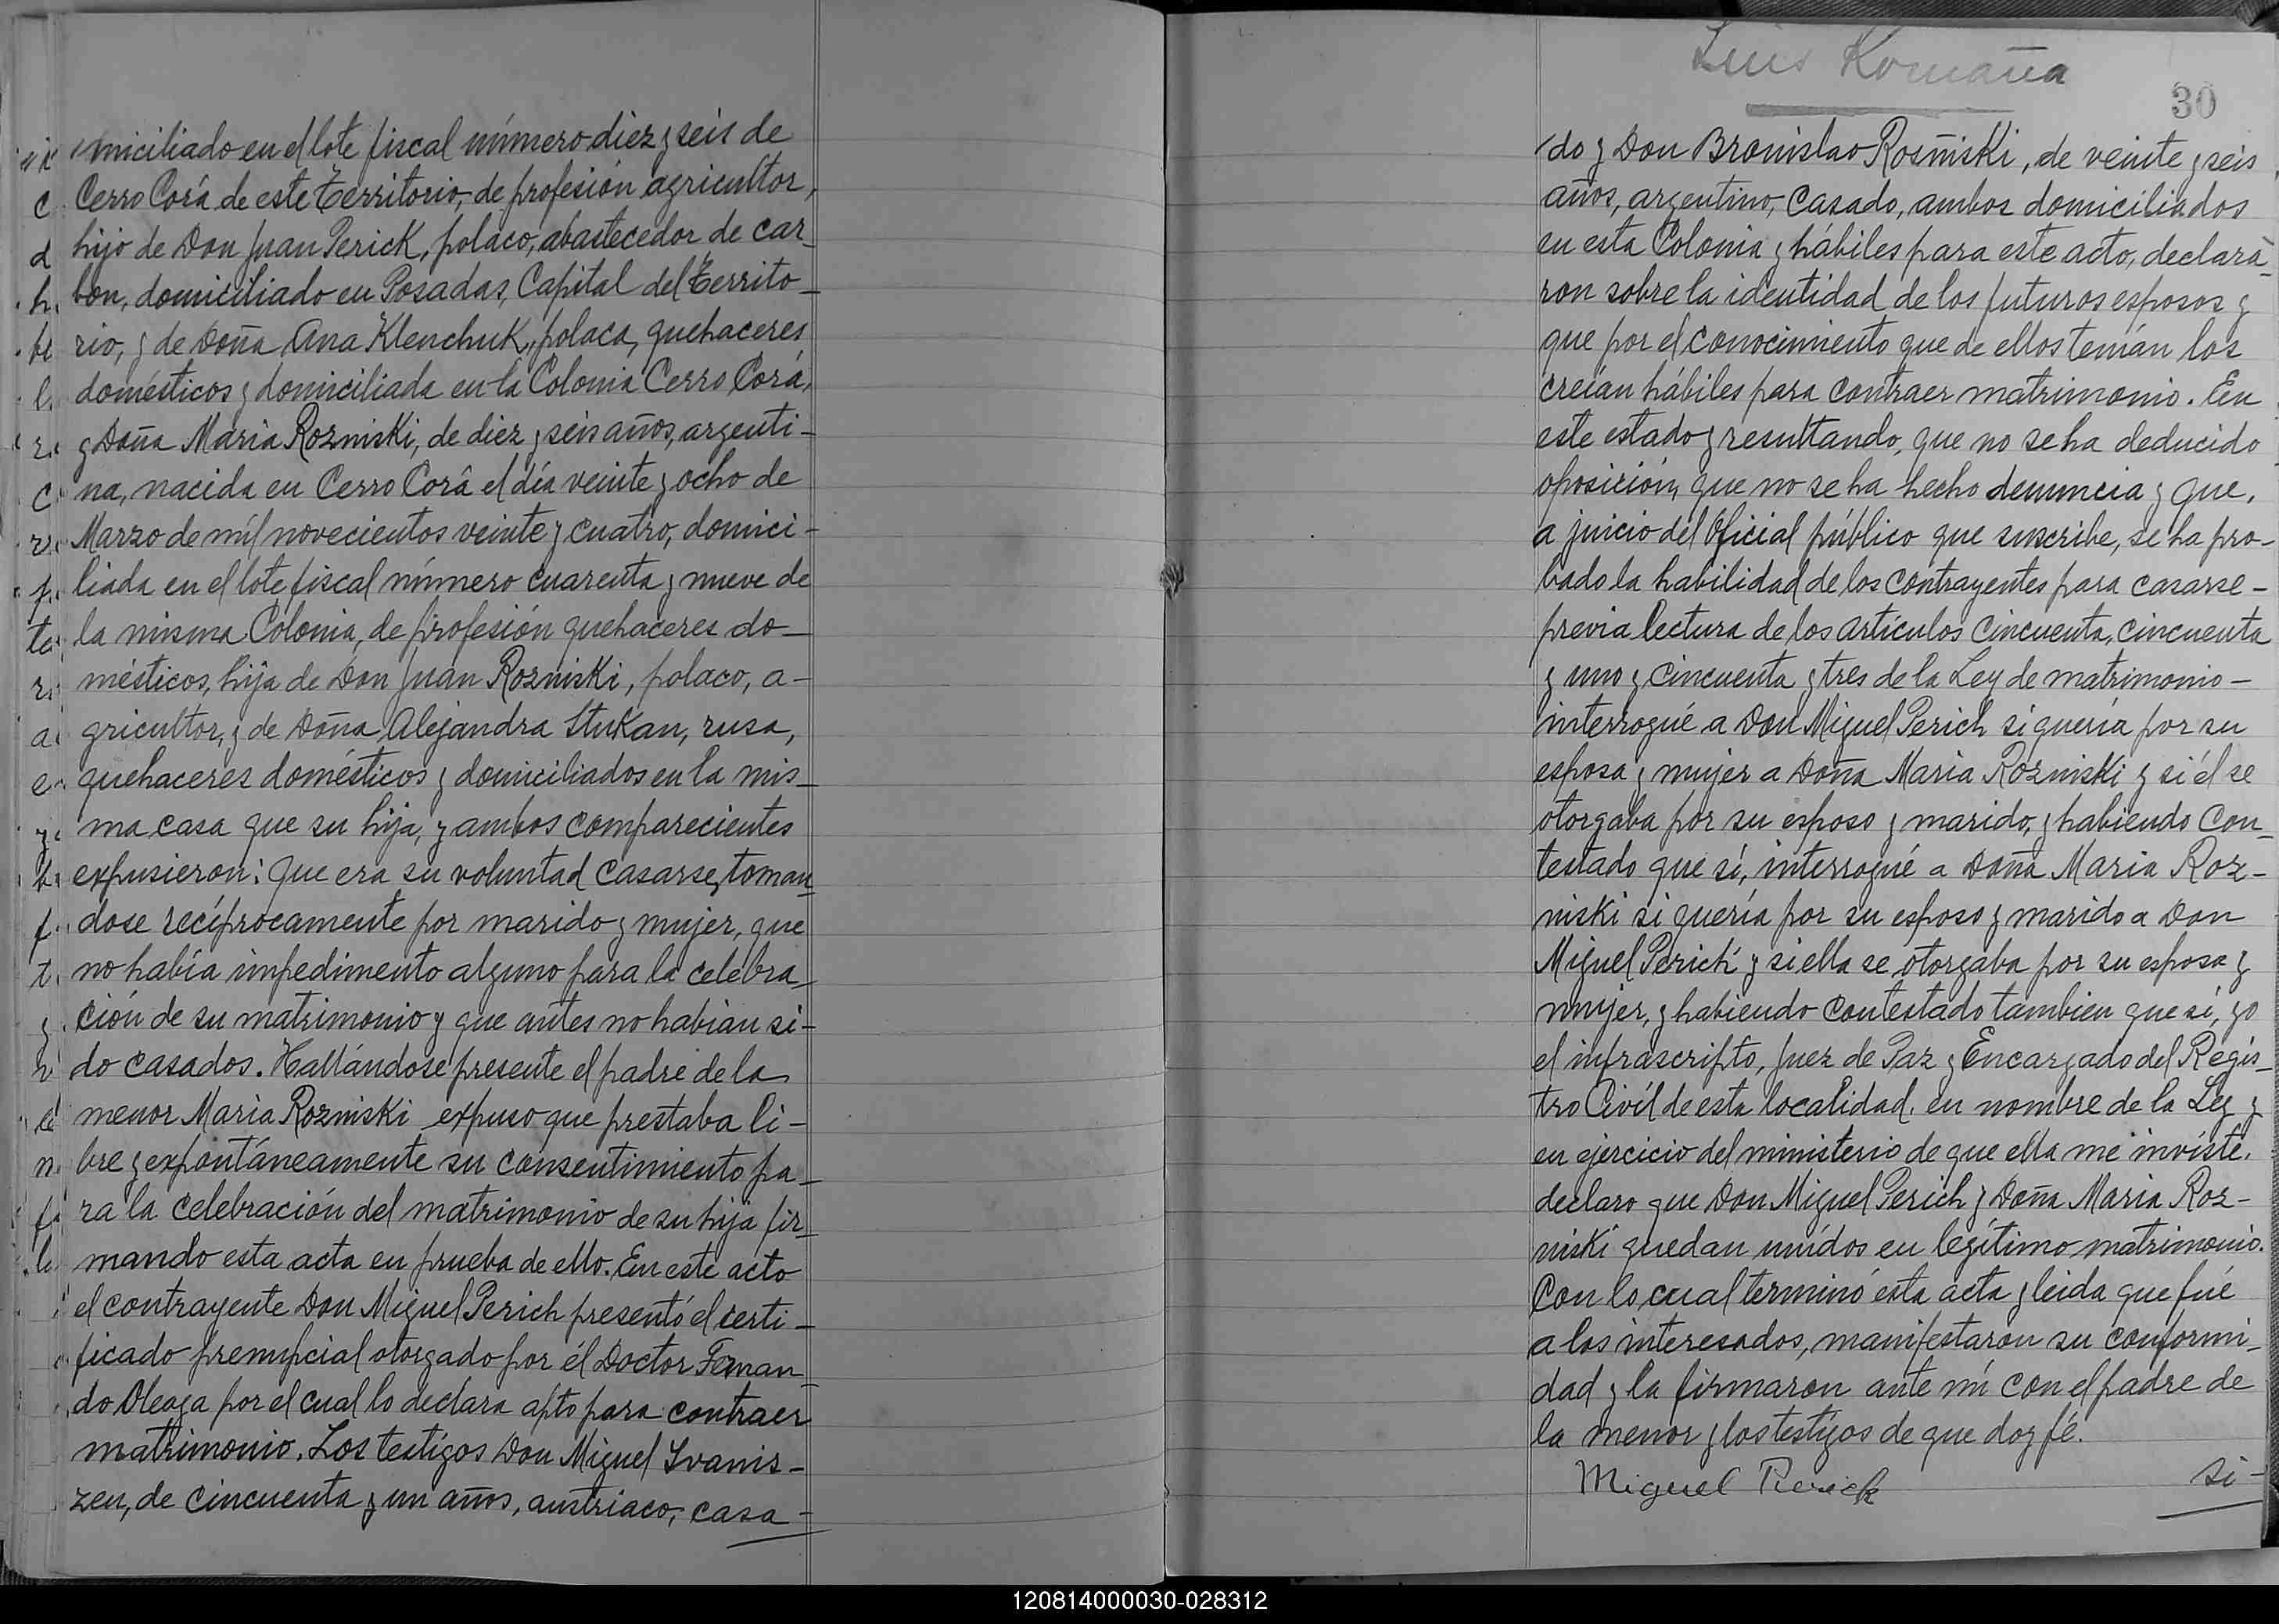 miciliado en el lote fiscal número diez y seis de
Cerro Corá de este Territorio, de profesión agricultor,
hijo de Don Juan Perick, polaco, abastecedor de car-
bon, domiciliado en Posadas, Capital del Territo-
rio, y de Doña Ana Klenchuk, polaca, quehaceres
domésticos y domiciliada en la Colonia Cerro Corá,
y Doña Maria Rozniski, de diez y seis años, argenti-
na, nacida en Cerro Corá el día veinte y ocho de
Marzo de mil novecientos veinte y cuatro, domici-
liada en el lote fiscal número cuarenta y nueve de
la misma Colonia, de profesión quehaceres do-
mésticos, hija de Don Juan Rozniski, polaco, a-
gricultor, y de Doña Alejandra Stukan, rusa,
quehaceres domésticos y domiciliados en la mis-
ma casa que su hija, y ambos comparecientes
expusieron: Que era su voluntad casarse, toman-
dose recíprocamente por marido y mujer, que
no había impedimento alguno para la celebra-
ción de su matrimonio y que antes no habían si-
do casados. Hallándose presente el padre de la
menor Maria Rozniski expuso que prestaba li-
bre y expontáneamente su consentimiento pa-
ra la celebración del matrimonio de su hija fir-
mando esta acta en prueba de ello. En este acto
el contrayente Don Miguel Perich presentó el certi-
ficado prenupcial otorgado por él Doctor Fernan-
do Oleaga por el cual lo declara apto para contraer
matrimonio. Los testigos Don Miguel Ivanis-
zen, de cincuenta y un años, austriaco, casa-
Luis Romaña
30
do y Don Bronislao Rosñiski, de veinte y seis
años, argentino, casado, ambos domiciliados
en esta Colonia y hábiles para este acto, declara-
ron sobre la identidad de los futuros esposos y
que por el conocimiento que de ellos tenían los
creían hábiles para contraer matrimonio. En
este estado y resultando, que no se ha deducido
oposición, que no se ha hecho denuncia y que,
a juicio del Oficial público que suscribe, se ha pro-
bado la habilidad de los contrayentes para casarse-
previa lectura de los artículos cincuenta, cincuenta
y uno y cincuenta y tres de la Ley de matrimonio-
interrogué a Don Miguel Perich si quería por su
esposa y mujer a Doña Maria Rozniski y si él se
otorgaba por su esposo y marido, y habiendo con-
testado que sí, interrogué a Doña Maria Roz-
niski si quería por su esposo y marido a Don
Miguel Perich y si ella se otorgaba por su esposa y
mujer, y habiendo contestado tambien que sí, yo
el infrascripto, Juez de Paz y Encargado del Regis-
tro Civíl de esta localidad, en nombre de la Ley y
en ejercicio del ministerio de que ella me inviste,
declaro que Don Miguel Perich y Doña Maria Roz-
niski quedan unídos en legítimo matrimonio.
Con lo cual terminó esta acta y leida que fué
a los interesados, manifestaron su conformi-
dad y la firmaron ante mí con el padre de
la menor y los testigos de que doy fé.
Miguel Perick
si-
120814000030-028312